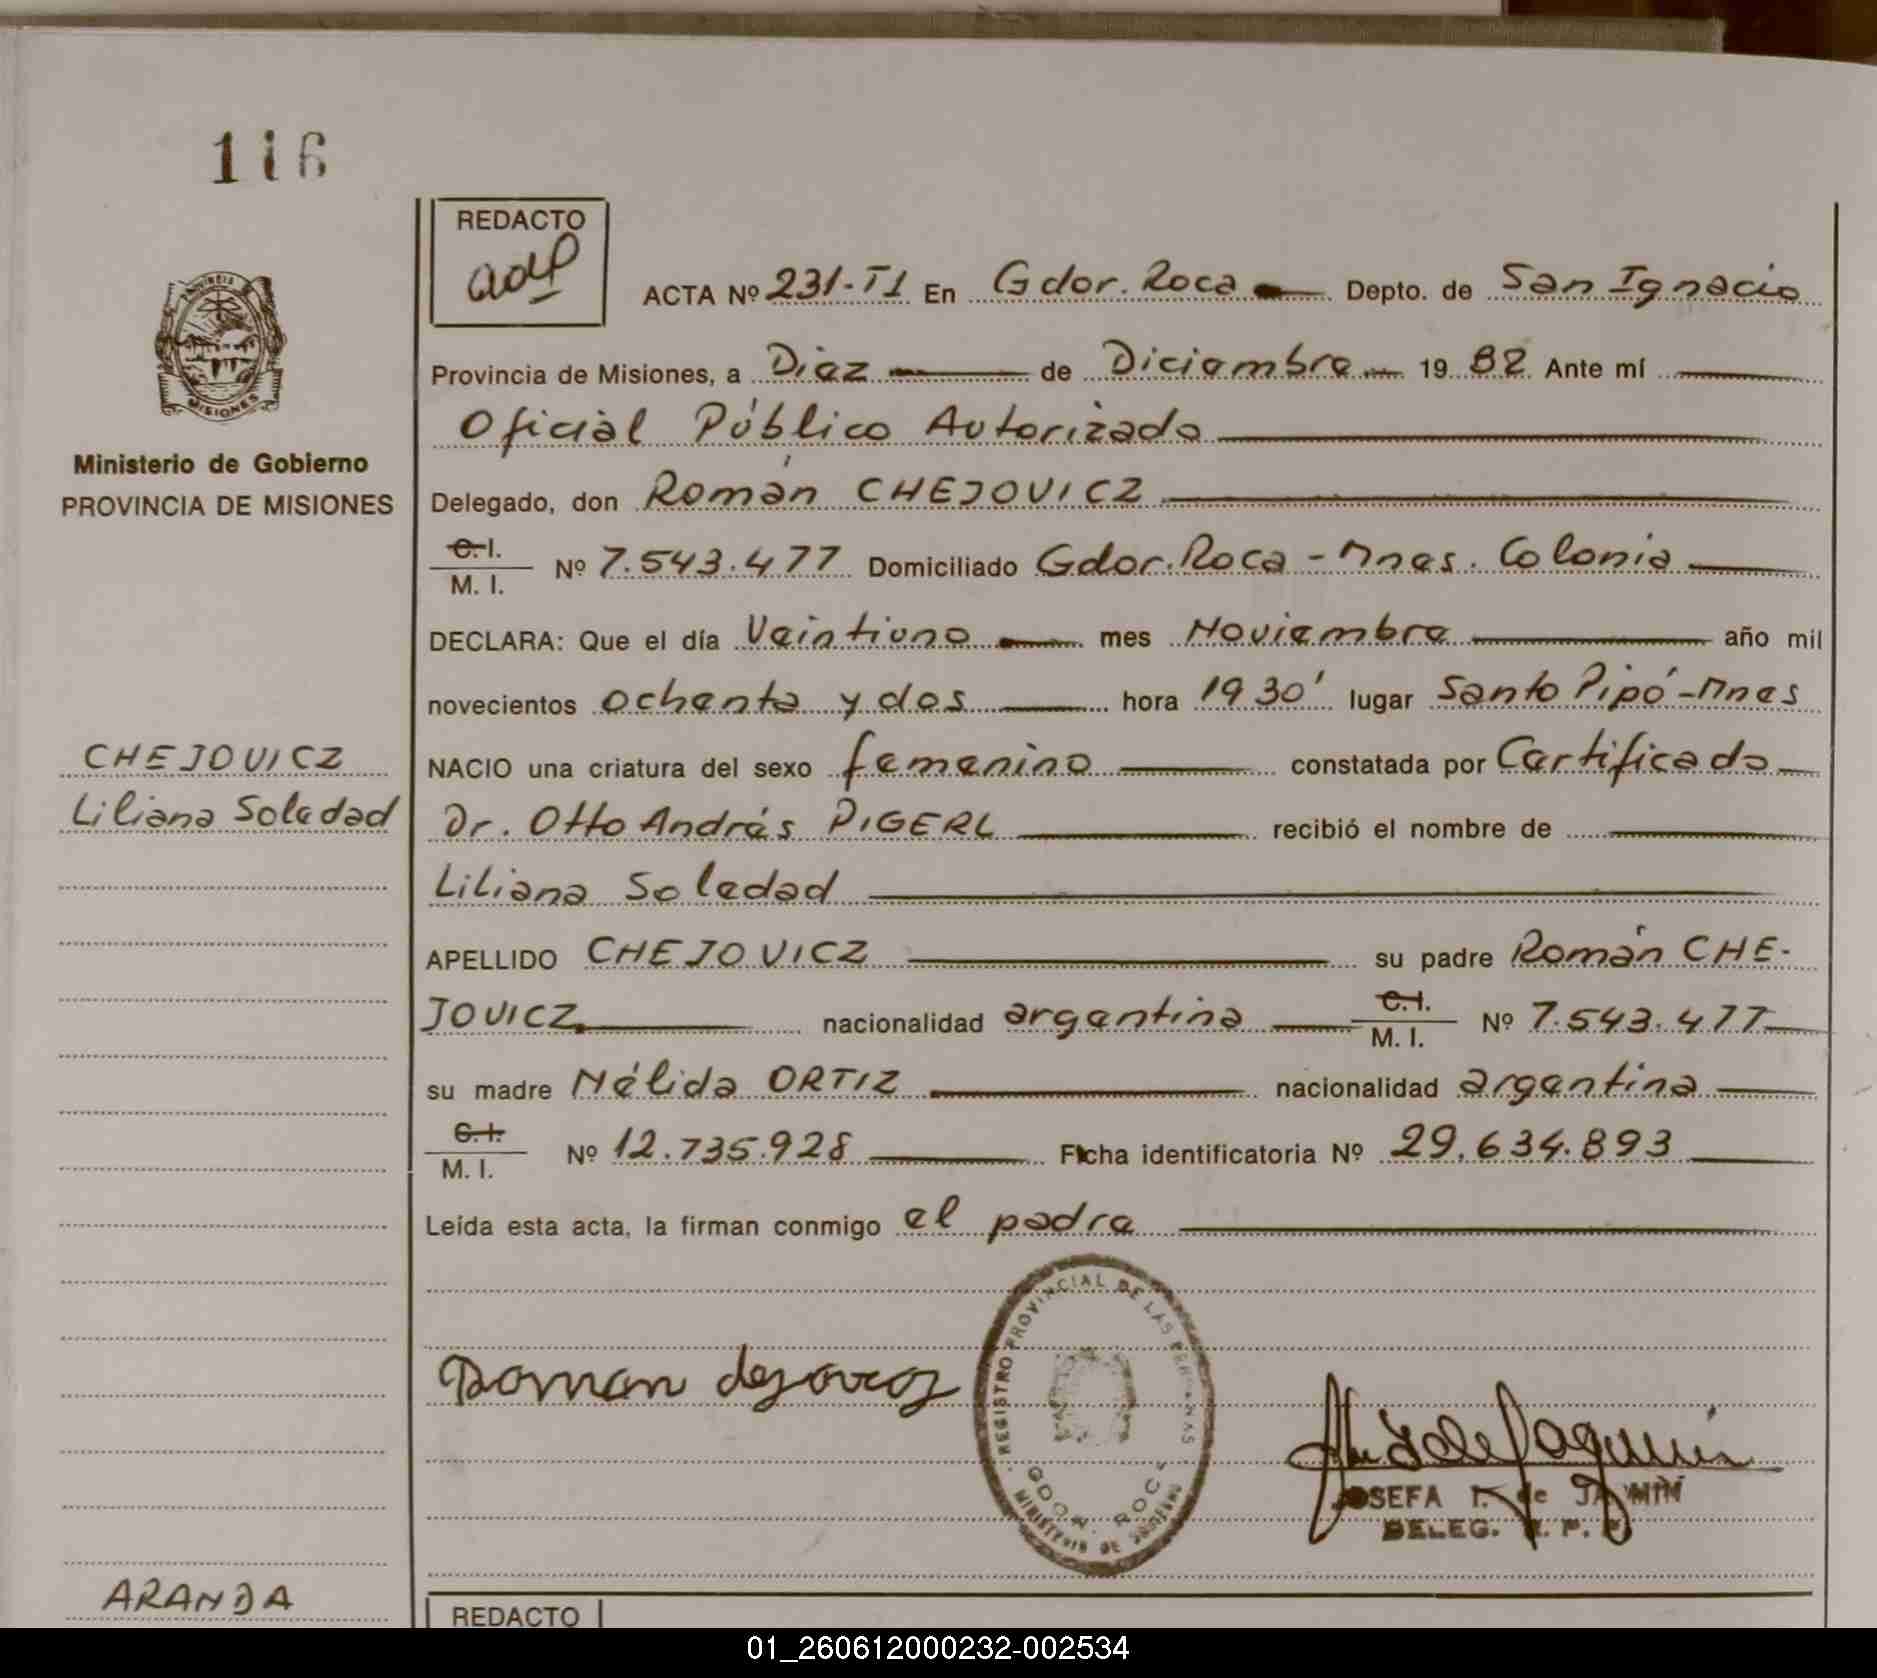 116
REDACTO
ACTA Nº 231-T1 En Gdor. Roca Depto. de San Ignacio
PROVINCIA
MISIONES
Provincia de Misiones, a Diez de Diciembre 19 82 Ante mí
Oficial Público Autorizado
Ministerio de Gobierno
PROVINCIA DE MISIONES
Delegado, don Román CHEJOVICZ
C.I.
M. I. Nº 7.543.477 Domiciliado Gdor. Roca - Mnes. Colonia
DECLARA: Que el día Veintiuno mes Noviembre año mil
novecientos ochenta y dos hora 19 30' lugar Santo Pipó-Mnes
CHEJOVICZ
Liliana Soledad
NACIO una criatura del sexo femenino constatada por Certificado
Dr. Otto Andrés PIGERL recibió el nombre de
Liliana Soledad
APELLIDO CHEJOVICZ su padre Román CHE-
JOVICZ nacionalidad argentina C.I. M. I. Nº 7.543.477
su madre Nélida ORTIZ nacionalidad argentina
C.I.
M. I. Nº 12.735.928 Ficha identificatoria Nº 29.634.893
Leída esta acta, la firman conmigo el padre
REGISTRO PROVINCIAL DE LAS PERSONAS
GDOR. ROCA
MINISTERIO DE GOBIERNO
JOSEFA de
DELEG. R. P.
ARANDA
REDACTO
01_260612000232-002534